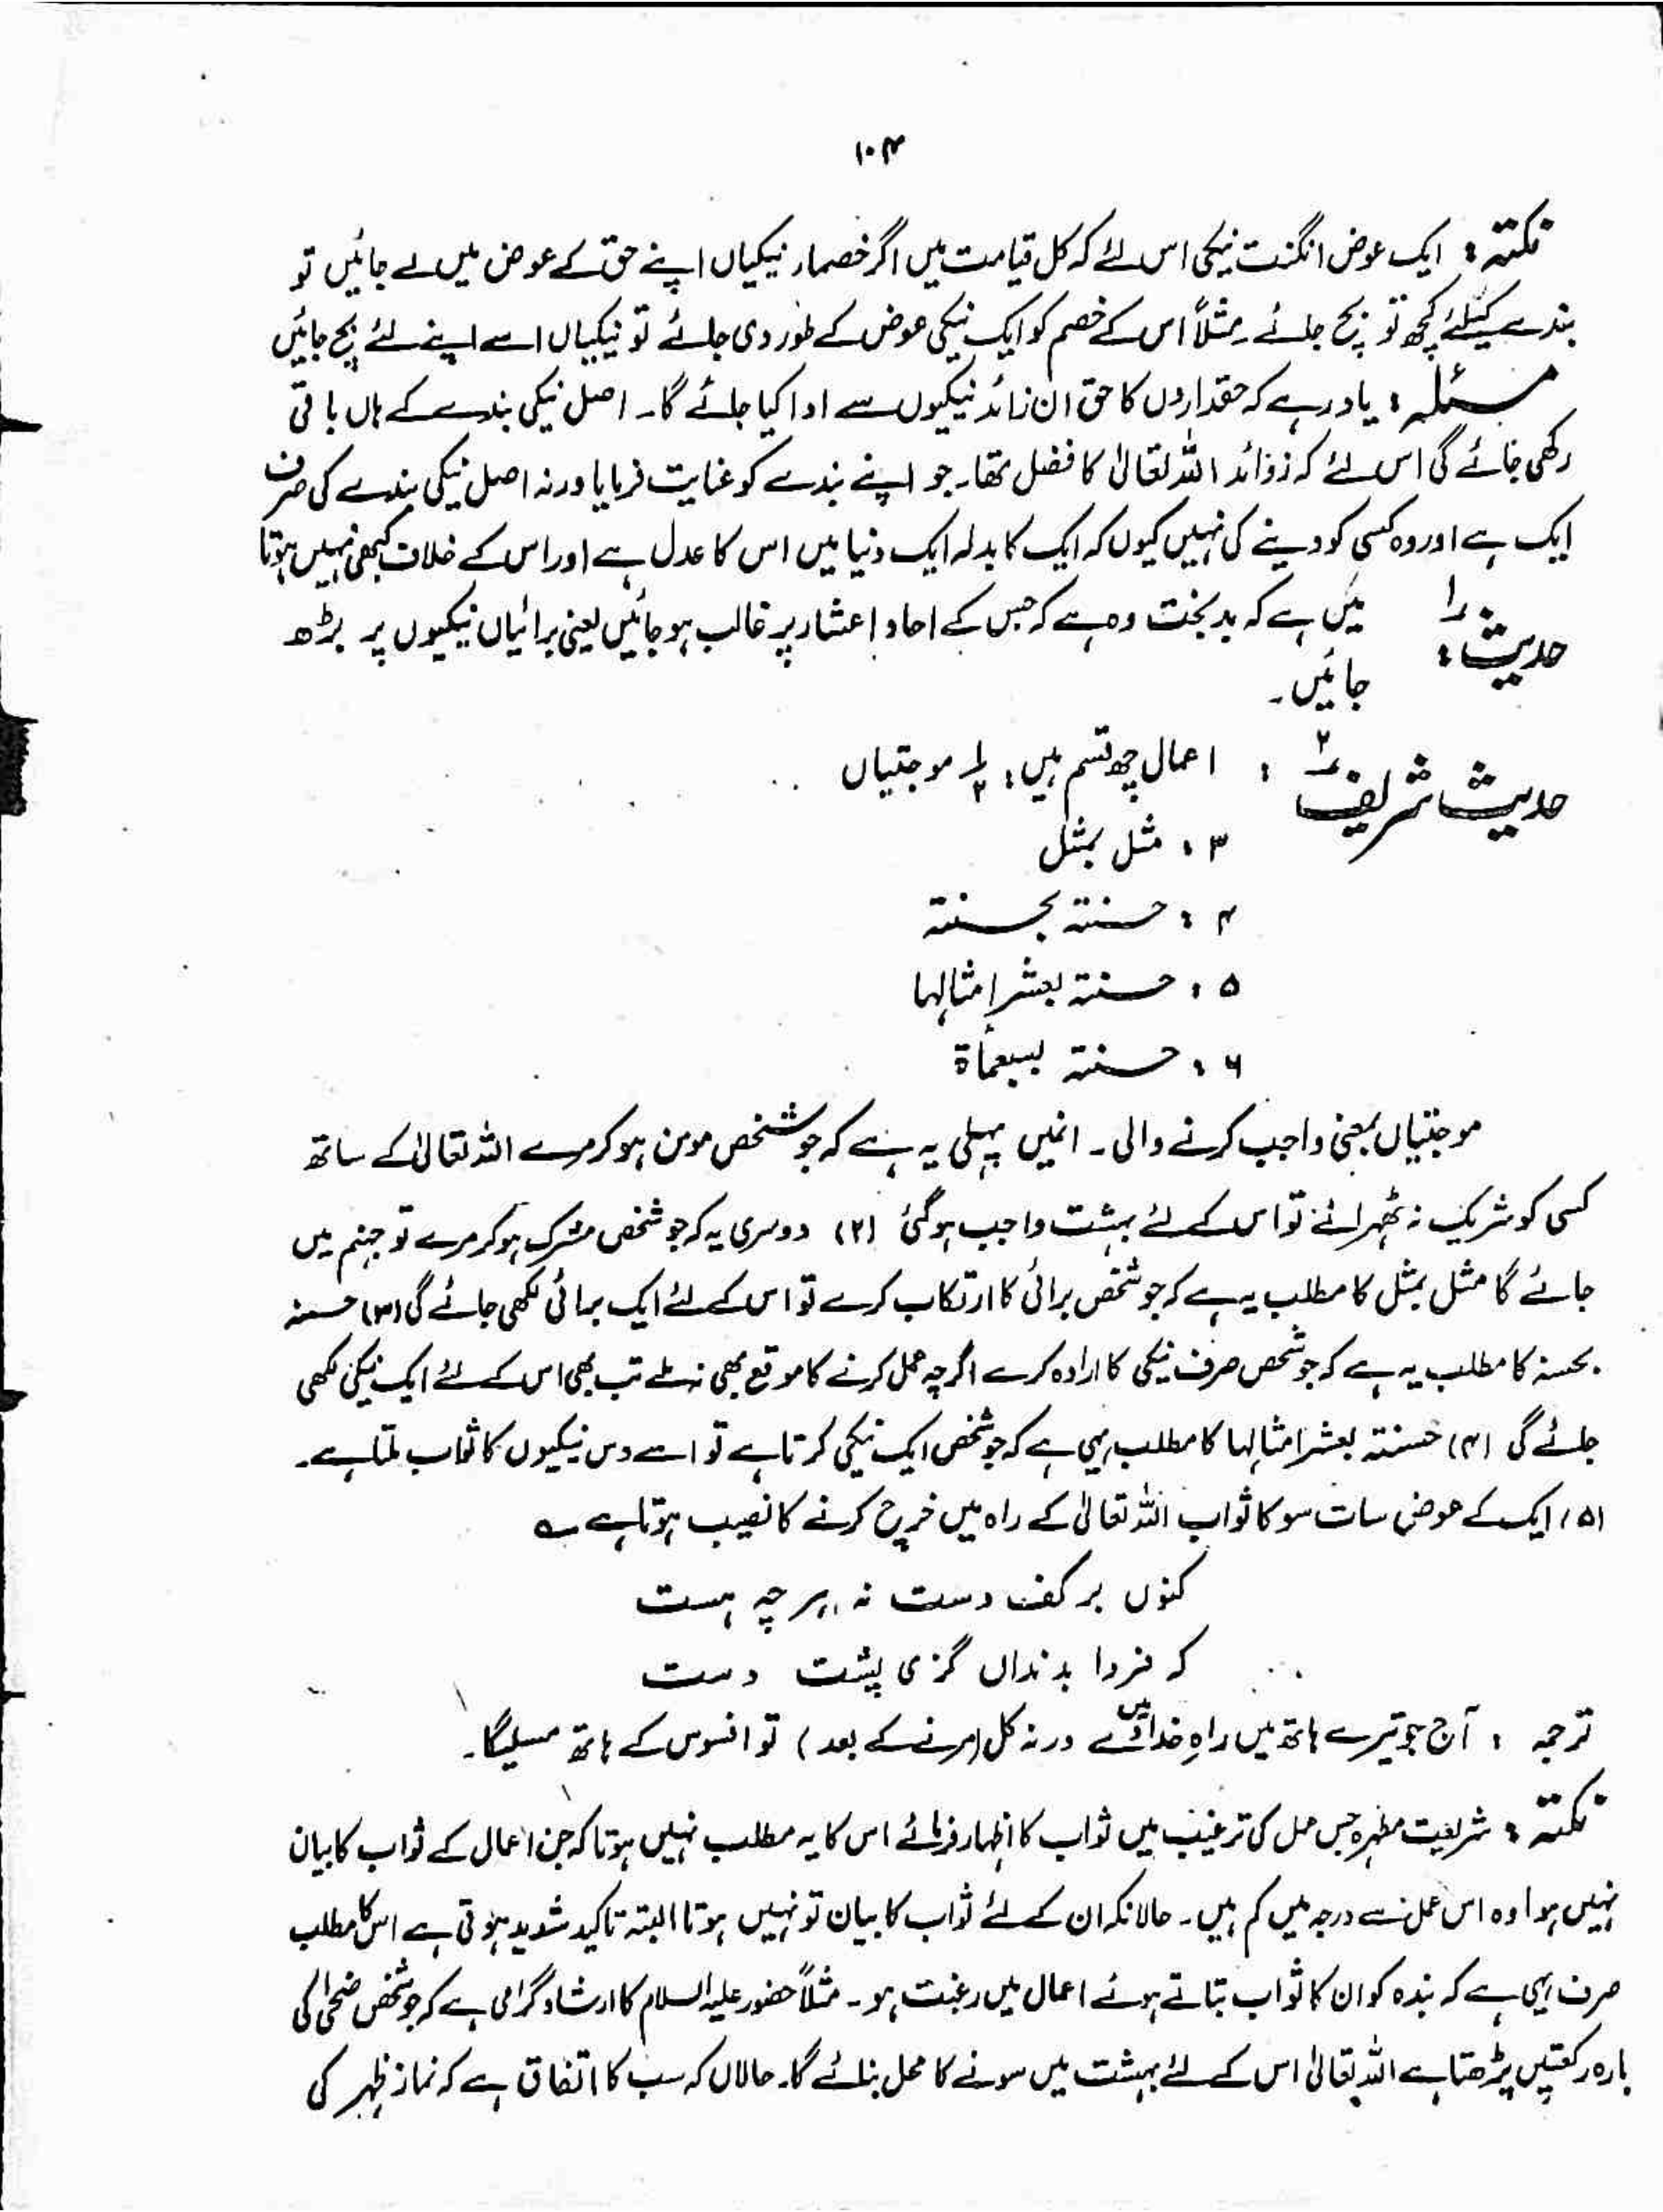 ۱۰۴
نکتہ: ایک عوض انگنت نیکی اس لئے کہ کل قیامت میں اگر خصماء نیکیاں اپنے حق کے عوض میں لے جائیں تو
بندے کیلئے کچھ تو بچ جائے۔ مثلاً اس کے خصم کو ایک نیکی عوض کے طور دی جائے تو نیکیاں اسے اپنے لئے بچ جائیں
مسئلہ: یاد رہے کہ حقداروں کا حق ان زائد نیکیوں سے ادا کیا جائے گا۔ اصل نیکی بندے کے ہاں باقی
رکھی جائے گی اس لئے کہ زوائد اللہ تعالیٰ کا فضل تھا۔ جو اپنے بندے کو عنایت فرمایا ورنہ اصل نیکی بندے کی صرف
ایک ہے اور وہ کسی کو دینے کی نہیں کیوں کہ ایک کا بدلہ ایک دنیا میں اس کا عدل ہے اور اس کے خلاف کبھی نہیں ہوتا
حدیث ۱: میں ہے کہ بدبخت وہ ہے کہ جس کے احاد اعشار پر غالب ہو جائیں یعنی برائیاں نیکیوں پر بڑھ
جائیں۔
حدیث شریف ۲: اعمال چھ قسم ہیں: ۱؍۲ موجبتیاں
۳: مثل بمثل
۴: حسنتہ بحسنتہ
۵: حسنتہ بعشر امثالہا
۶: حسنتہ بسبعماۃ
موجبتیاں بمعنی واجب کرنے والی۔ انمیں پہلی یہ ہے کہ جو شخص مومن ہو کر مرے اللہ تعالیٰ کے ساتھ
کسی کو شریک نہ ٹھہرائے تو اس کے لئے بہشت واجب ہوگئی (۲) دوسری یہ کہ جو شخص مشرک ہو کر مرے تو جہنم میں
جائے گا مثل بمثل کا مطلب یہ ہے کہ جو شخص برائی کا ارتکاب کرے تو اس کے لئے ایک برائی لکھی جائے گی (۳) حسنہ
بحسنہ کا مطلب یہ ہے کہ جو شخص صرف نیکی کا ارادہ کرے اگرچہ عمل کرنے کا موقع بھی نہ ملے تب بھی اس کے لئے ایک نیکی لکھی
جائے گی (۴) حسنتہ بعشر امثالہا کا مطلب یہی ہے کہ جو شخص ایک نیکی کرتا ہے تو اسے دس نیکیوں کا ثواب ملتا ہے۔
(۵) ایک کے عوض سات سو کا ثواب اللہ تعالیٰ کے راہ میں خرچ کرنے کا نصیب ہوتا ہے ؎
کنوں بر کف دست نہ ہر چہ ہست
کہ فردا بدنداں گزی پشت دست
ترجمہ: آج جو تیرے ہاتھ میں راہ خدا میں دے ورنہ کل (مرنے کے بعد) تو افسوس کے ہاتھ مسلیگا۔
نکتہ: شریعت مطہرہ جس عمل کی ترغیب میں ثواب کا اظہار فرمائے اس کا یہ مطلب نہیں ہوتا کہ جن اعمال کے ثواب کا بیان
نہیں ہوا وہ اس عمل سے درجہ میں کم ہیں۔ حالانکہ ان کے لئے ثواب کا بیان تو نہیں ہوتا البتہ تاکید شدید ہوتی ہے اس کا مطلب
صرف یہی ہے کہ بندہ کو ان کا ثواب بتاتے ہوئے اعمال میں رغبت ہو۔ مثلاً حضور علیہ السلام کا ارشاد گرامی ہے کہ جو شخص ضحیٰ کی
بارہ رکعتیں پڑھتا ہے اللہ تعالیٰ اس کے لئے بہشت میں سونے کا محل بنائے گا۔ حالاں کہ سب کا اتفاق ہے کہ نماز ظہر کی